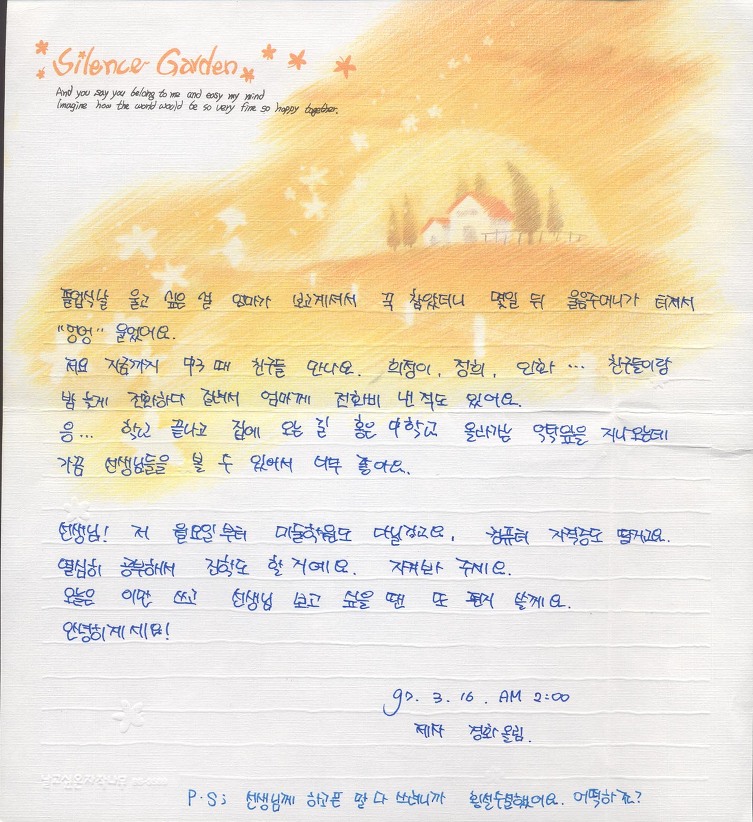 Silence Garden
And you say you belong to me and easy my mind
Imagine how the world would be so very fine so happy together.
졸업식날 울고 싶은 걸 엄마가 보고계셔서 꾹 참았더니 몇일 뒤 울음주머니가 터져서
"엉엉" 울었어요.
저요 지금까지 中3 때 친구들 만나요. 희정이, 정희, 인화 … 친구들이랑
밤 늦게 전화하다 걸려서 엄마께 전화비 낸 적도 있어요.
음… 학교 끝나고 집에 오는 길 홍은 中학교 올라가는 앞을 지나오는데
가끔 선생님들을 볼 수 있어서 너무 좋아요.
선생님! 저 월요일부터 미술학원도 다닐거고요, 컴퓨터 자격증도 딸거고요.
열심히 공부해서 진학도 할 거예요. 지켜봐 주세요.
오늘은 이만 쓰고 선생님 보고 싶을 땐 또 편지 쓸께요.
안녕히계세요!
97. 3. 16. AM 2:00
제자 경화 올림.
P.S; 선생님께 하고픈 말 다 쓰려니까 횡설수설했어요. 어떡하죠?